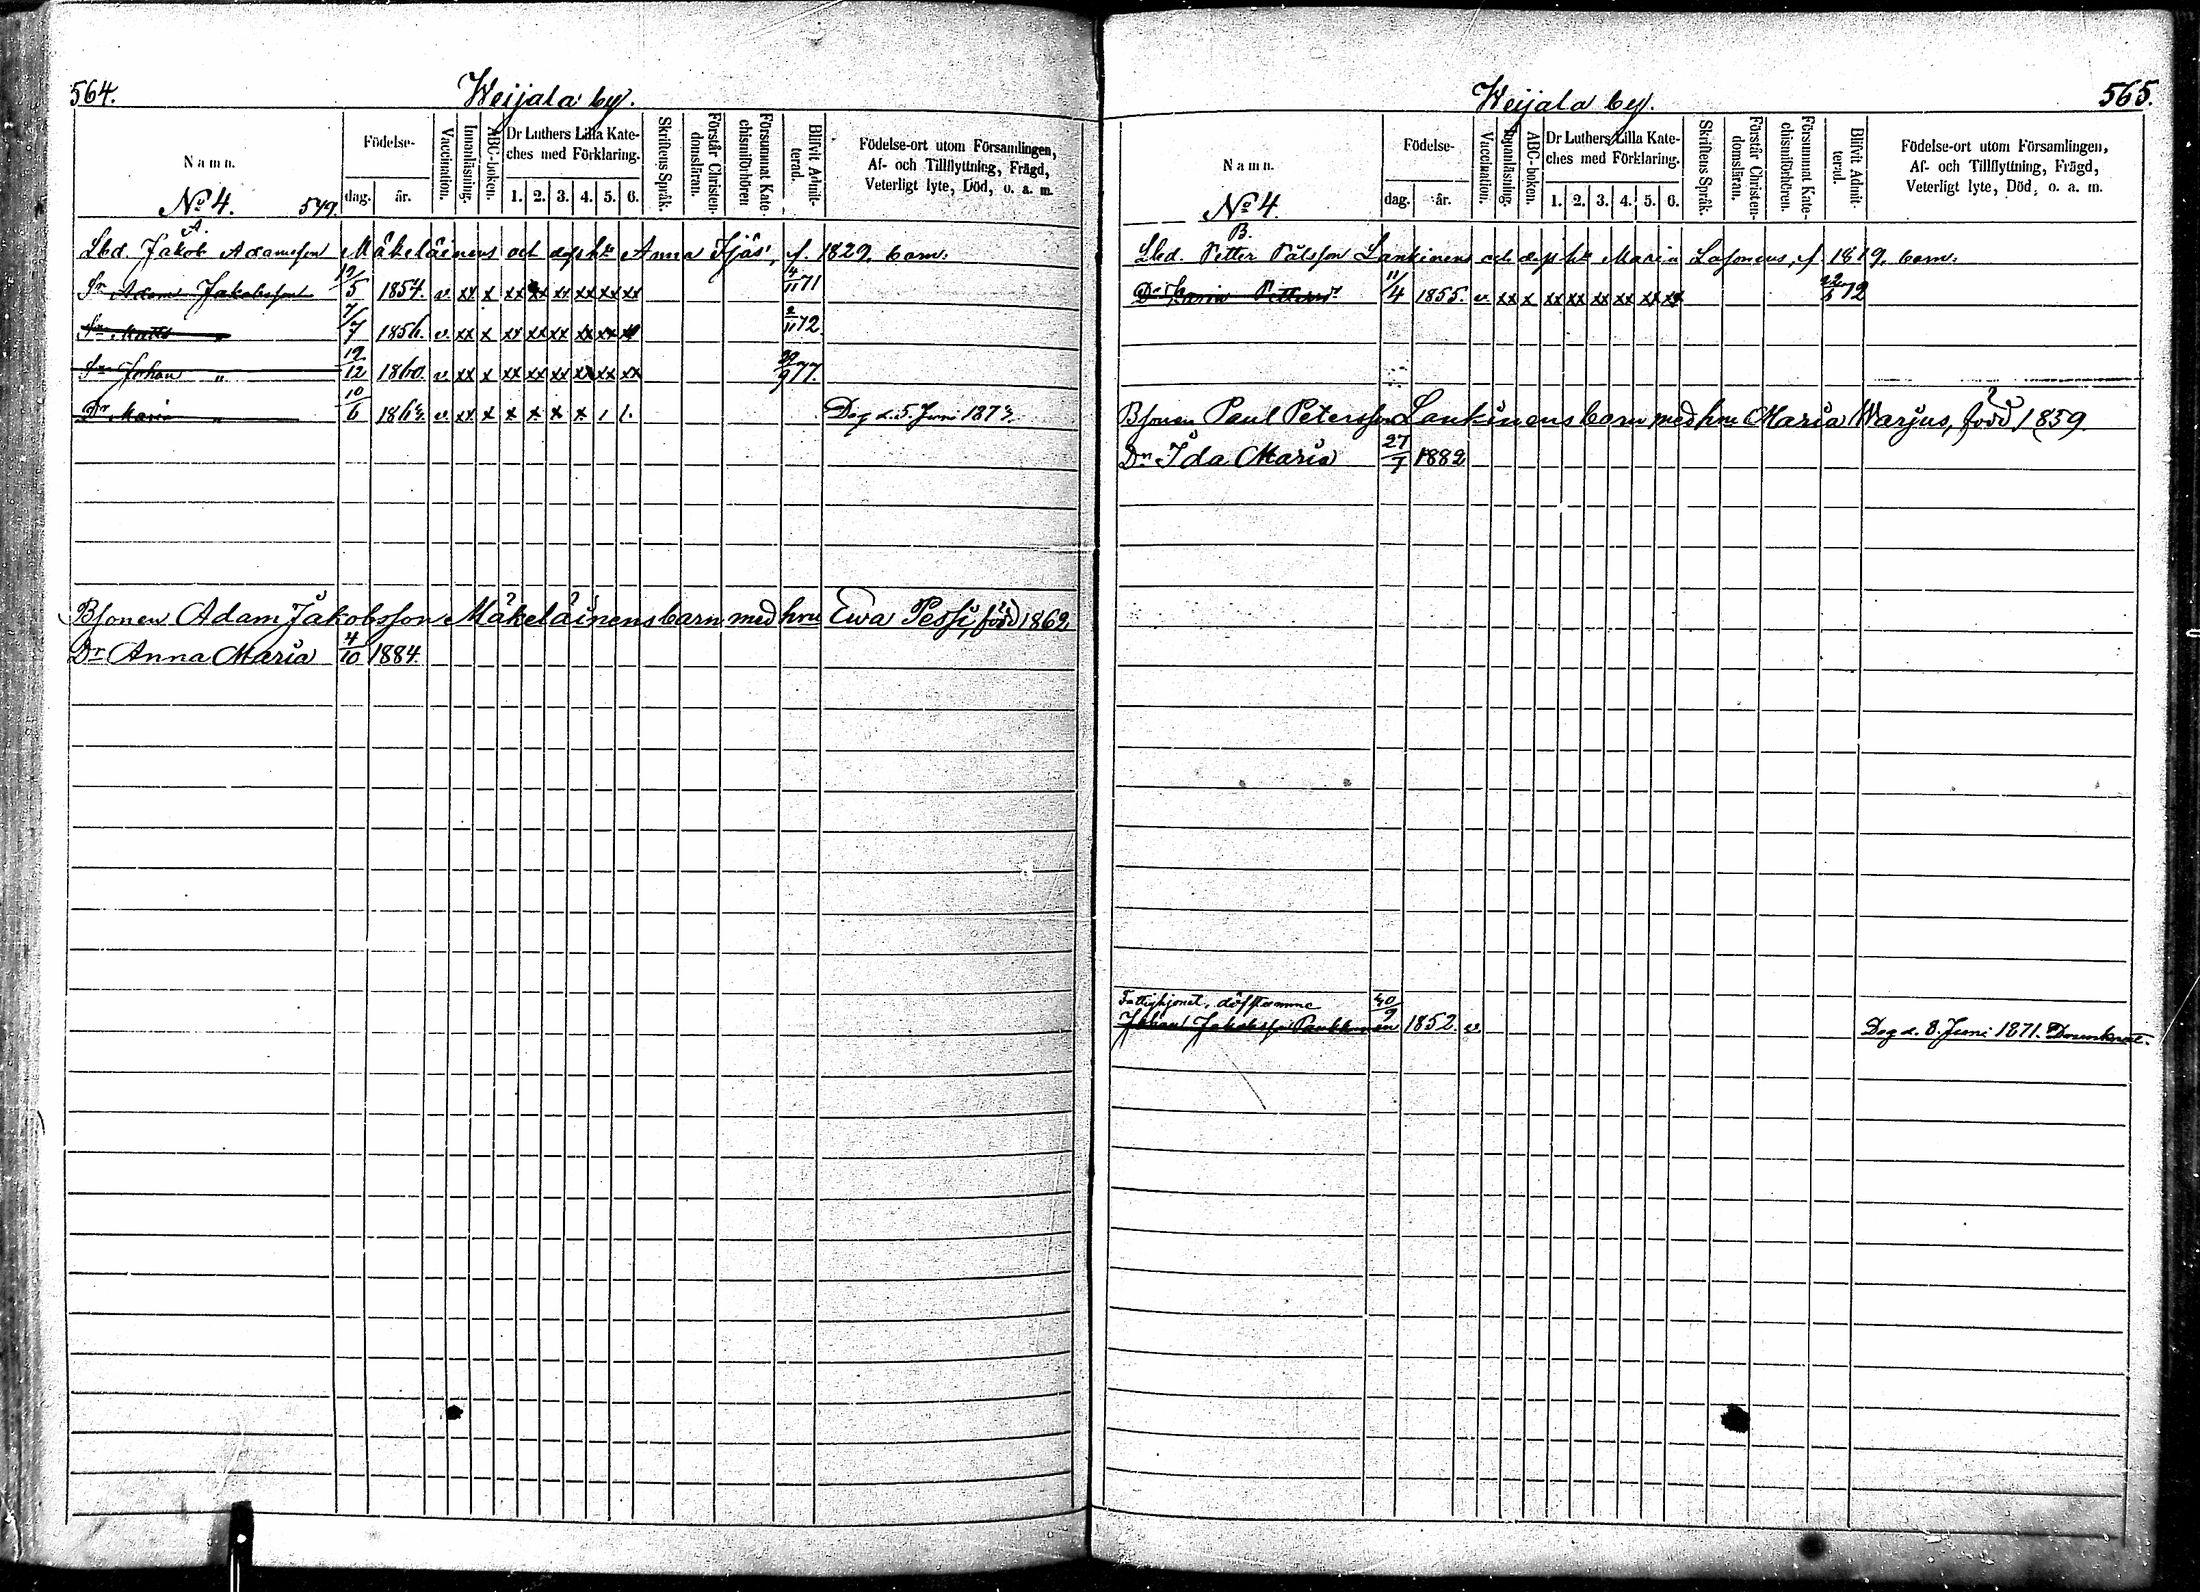 564.
Weijala by.
Namn.
Födelse-
dag.
år.
Vaccination.
Innanläsning.
ABC-boken.
Dr Luthers Lilla Kate-
ches med Förklaring.
1. 2. 3. 4. 5. 6.
Skriftens Språk.
Förstår Christen-
domsläran.
Försummat Kate-
chismiförhören
Blifvit Admit-
terad.
Födelse-ort utom Församlingen,
Af- och Tillflyttning, Frägd,
Veterligt lyte, Död, o. a. m.
No 4. 549.
A.
Lbd. Jakob Adamsson Mäkeläinens och Anna f. 1829. barn.
Sn Adam Jakobsson 19/5 1854. v. xx x xx xx xx xx xx xx 4/11 71
Sn Matts " 7/7 1856. v. xx x xx xx xx xx xx 2/11 72
Sn Johan " 19/12 1860. v. xx x xx xx xx xx xx xx 30/9 77.
Dr Maria " 10/6 v. xx x x x x x 1 1. Dog d. 5. Juni
Bsonen Adam Jakobsson Mäkeläinens barn med hru Ewa Pessi, född 1862.
Dr Anna Maria 4/10 1884.
565.
Weijala by.
Namn.
Födelse-
dag.
år.
Vaccination.
Innanläsning.
ABC-boken.
Dr Luthers Lilla Kate-
ches med Förklaring.
1. 2. 3. 4. 5. 6.
Skriftens Språk.
Förstår Christen-
domsläran.
Försummat Kate-
chismiförhören.
Blifvit Admit-
terad.
Födelse-ort utom Församlingen,
Af- och Tillflyttning, Frägd,
Veterligt lyte, Död, o. a. m.
No 4.
B.
Lbd. Petter Pålsson Lankinens och Maria f 1819. barn.
Dr 11/4 1855. v. xx x xx xx xx xx xx xx 72
Bsonen Paul Petersson Lankinens barn med hru Maria Warjus, född 1859.
Dr Ida Maria 27/7 1882
Fattighjonet, döfstumme
Johan Jakobsson 1852. v. Dog d. 8. Juni 1871.